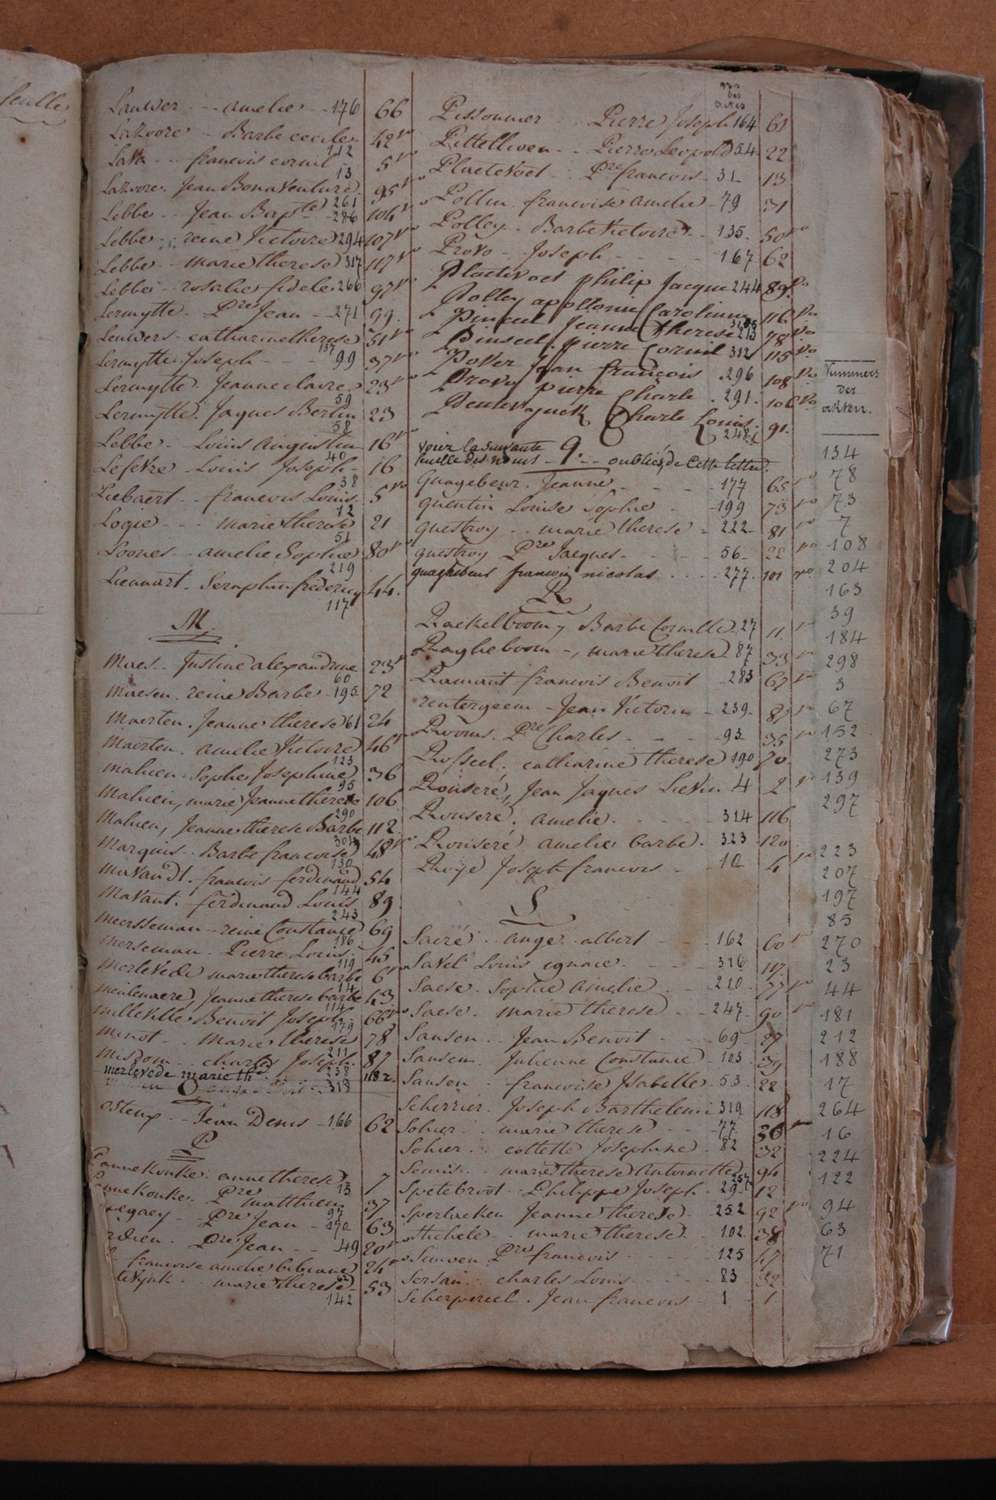 feuille
Lauwer amelie 176 66
Barbe cecile 112 42 vo
francois cornil 13 5 vo
Jean Bonaventure 261 95 vo
Lebbe Jean Bapte 286 104 vo
Lebbe reine Victoire 294 107 vo
Lebbe marie therese 317 117 vo
Lebbe rosalie fidele 266 97 vo
Lermytte Pre Jean 271 99
Leuwers catharine therese 137 51 vo
Lermytte Joseph 99 37 vo
Lermytte Jeanne claire 59 23 vo
Lermytte Jaques Bertin 58 23
Lebbe Louis augustin 40 16 vo
Lefevre Louis Joseph 38 16
Liebaert francois Louis 12 5 vo
Logie marie therese 51 21
Loones amelie Sophie 219 80 vo
Liennart Seraphin frederic 117 44
M.
Maes Justine alexandrine 60 23 vo
Maesen reine Barbe 195 72
Maerten Jeanne therese 61 24
Maerten amelie Victoire 123 46 vo
Mahieu Sophie Josephine 95 36
Mahieu, marie Jeanne therese 290 106
Mahieu, Jeanne therese Barbe 301 112
Marquis Barbe francoise 130 48 vo
francois ferdinand 144 54
ferdinand Louis 243 89
Meersseman reine Constance 186 69
Merseman Pierre Louis 119
Merlevede marie therese barbe 14 6 vo
Meulenaere Jeanne therese barbe 114 43
Milleville Benoit Joseph 179 66 vo
Minot marie therese 211 78
charles Joseph 238 87
merlevede marie the 313 118 2
osteux Jean Denis 166 62
P
Pannekouke anne therese 13 7
Pannekouke Pre matthieu 97 37
Pre Jean 170 63
Pre Jean 49 20 vo
francoise amelie bibiane 24 vo
marie therese 142 53
nos des actes
Pissonnier Pierre Joseph 164 61
Pittellioen Pierre Leopold 54 22
Plaetevoet Pre francois 31 13
Pollin francoise amelie 79 31
Polley Barbe Victoire 135 50 vo
Provo Joseph 167 62
Plaetevoet philip Jacque 244 89 vo
Polley apollonie Caroline 116 vo
Pinceel Jeanne Therese 213 78 vo
Pinseel pierre Cornil 312 115 vo
Jean francois 296 108 vo
pierre Charle 291 106 vo
Charle Louis 248 91
voier la suivante feuille des noms oubliés de cette lettre
Q.
quagebeur Jeanne 177 65 vo
quentin Louise Sophie 199 73 vo
questroy marie therese 222 81 vo
questroy Pre Jacques 56 22 vo
quaghebeur francois nicolas 277 101 vo
R
Raekelboom, Barbe Cornille 27 11 vo
Ragheboom, marie therese 87 33 vo
Ramaut francois Benoit 283 63 vo
rentergeem Jean Victorin 239 87 vo
Rooms Pre Charles 93 35 vo
Rosseel catharine therese 190 70
Rouseré, Jean Jaques Lievin 4 2 vo
Rouseré amelie 314 116
Rouseré amelie barbe 323 120
Roye Joseph francois 10 4 vo
S
Sacré ange albert 162 60 vo
Savel Louis ignace 316 117
Saese Sophie amelie 210 77 vo
Saese marie therese 247 90 vo
Sansen Jean Benoit 69 27
Sansen Julienne Constance 103 39
Sansen francoise Isabelle 53 22
Scherrier Joseph Barthelemi 319 118
Sohier marie therese 77 30 vo
Sohier collette Josephine 82 32
Somis marie therese antoinette 257 94
Spetebroot Philippe Joseph 29 12
Sperlaeken Jeanne therese 252 92 vo
Stichele marie therese 102 38
Pre francois 125 47
Sorsau charles Louis 83 32
Scherpereel Jean francois 1 1
Nummers
der
akten.
134
78
73
7
108
204
163
39
184
298
3
67
152
273
139
297
223
207
197
85
270
23
44
181
212
188
17
264
16
224
122
94
63
71